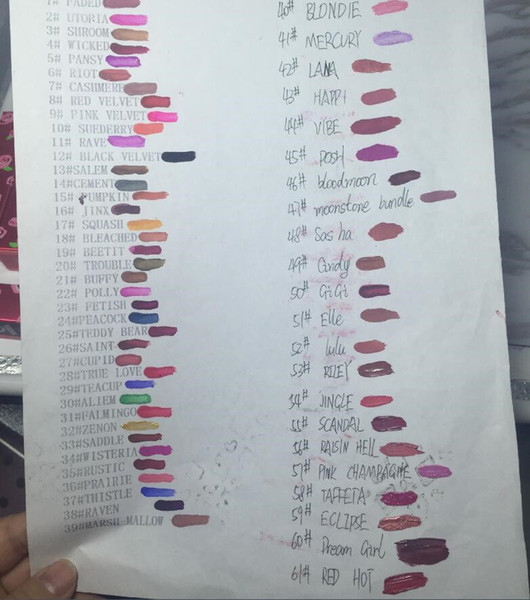 1# FADED
2# UTORIA
3# SHROOM
4# WICKED
5# PANSY
6# RIOT
7# CASHMERE
8# RED VELVET
9# PINK VELVET
10# SUEDERRY
11# RAVE
12# BLACK VELVET
13#SALEM
14#CEMENT
15# PUMPKIN
16# JINX
17# SQUASH
18# BLEACHED
19# BEETIT
20# TROUBLE
21# BUFFY
22# POLLY
23# FETISH
24#PEACOCK
25#TEDDY BEAR
26#SAINT
27#CUPID
28#TRUE LOVE
29#TEACUP
30#ALIEM
31#FALMINGO
32#ZENON
33#SADDLE
34#WISTERIA
35#RUSTIC
36#PRAIRIE
37#THISTLE
38#RAVEN
39#MARSH MALLOW
40# BLONDIE
41# MERCURY
42# LANA
43# HAPPI
44# VIBE
45# POSH
46# bloodmoon
47# moonstone bundle
48# Sasha
49# Candy
50# GiGi
51# Elle
52# lulu
53# RILEY
54# JINGLE
55# SCANDAL
56# RAISIN HELL
57# PINK CHAMPAGNE
58# TAFFETA
59# ECLIPSE
60# Dream Girl
61# RED HOT